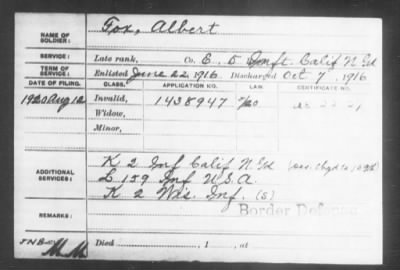 NAME OF SOLDIER: Fox, Albert
SERVICE: Late rank, Co. E. 5 Inft. Calif N Gd
TERM OF SERVICE: Enlisted June 22, 1916 Discharged Oct 7, 1916
DATE OF FILING. CLASS. APPLICATION NO. LAW. CERTIFICATE NO.
1920 Aug 12 Invalid, 1438947
Widow,
Minor,
ADDITIONAL SERVICES: K 2 Inf Calif N Gd
L 159 Inf U.S.A.
K 2 Wis. Inf. (S)
REMARKS: Border Defense
Died , 1 , at